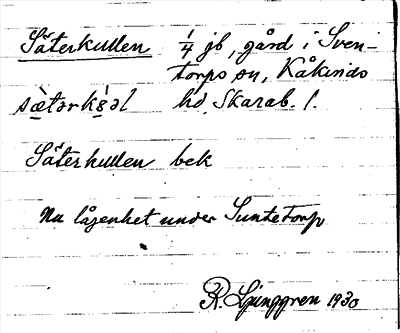 Säterkullen 1/4 jb, gård i Sven-
torps sn, Kåkinds
sæ̀tərk8̀əl hd, Skarab. l.
Säterkullen bek
Nu lägenhet under Suntetorp
R. Ljunggren 1930